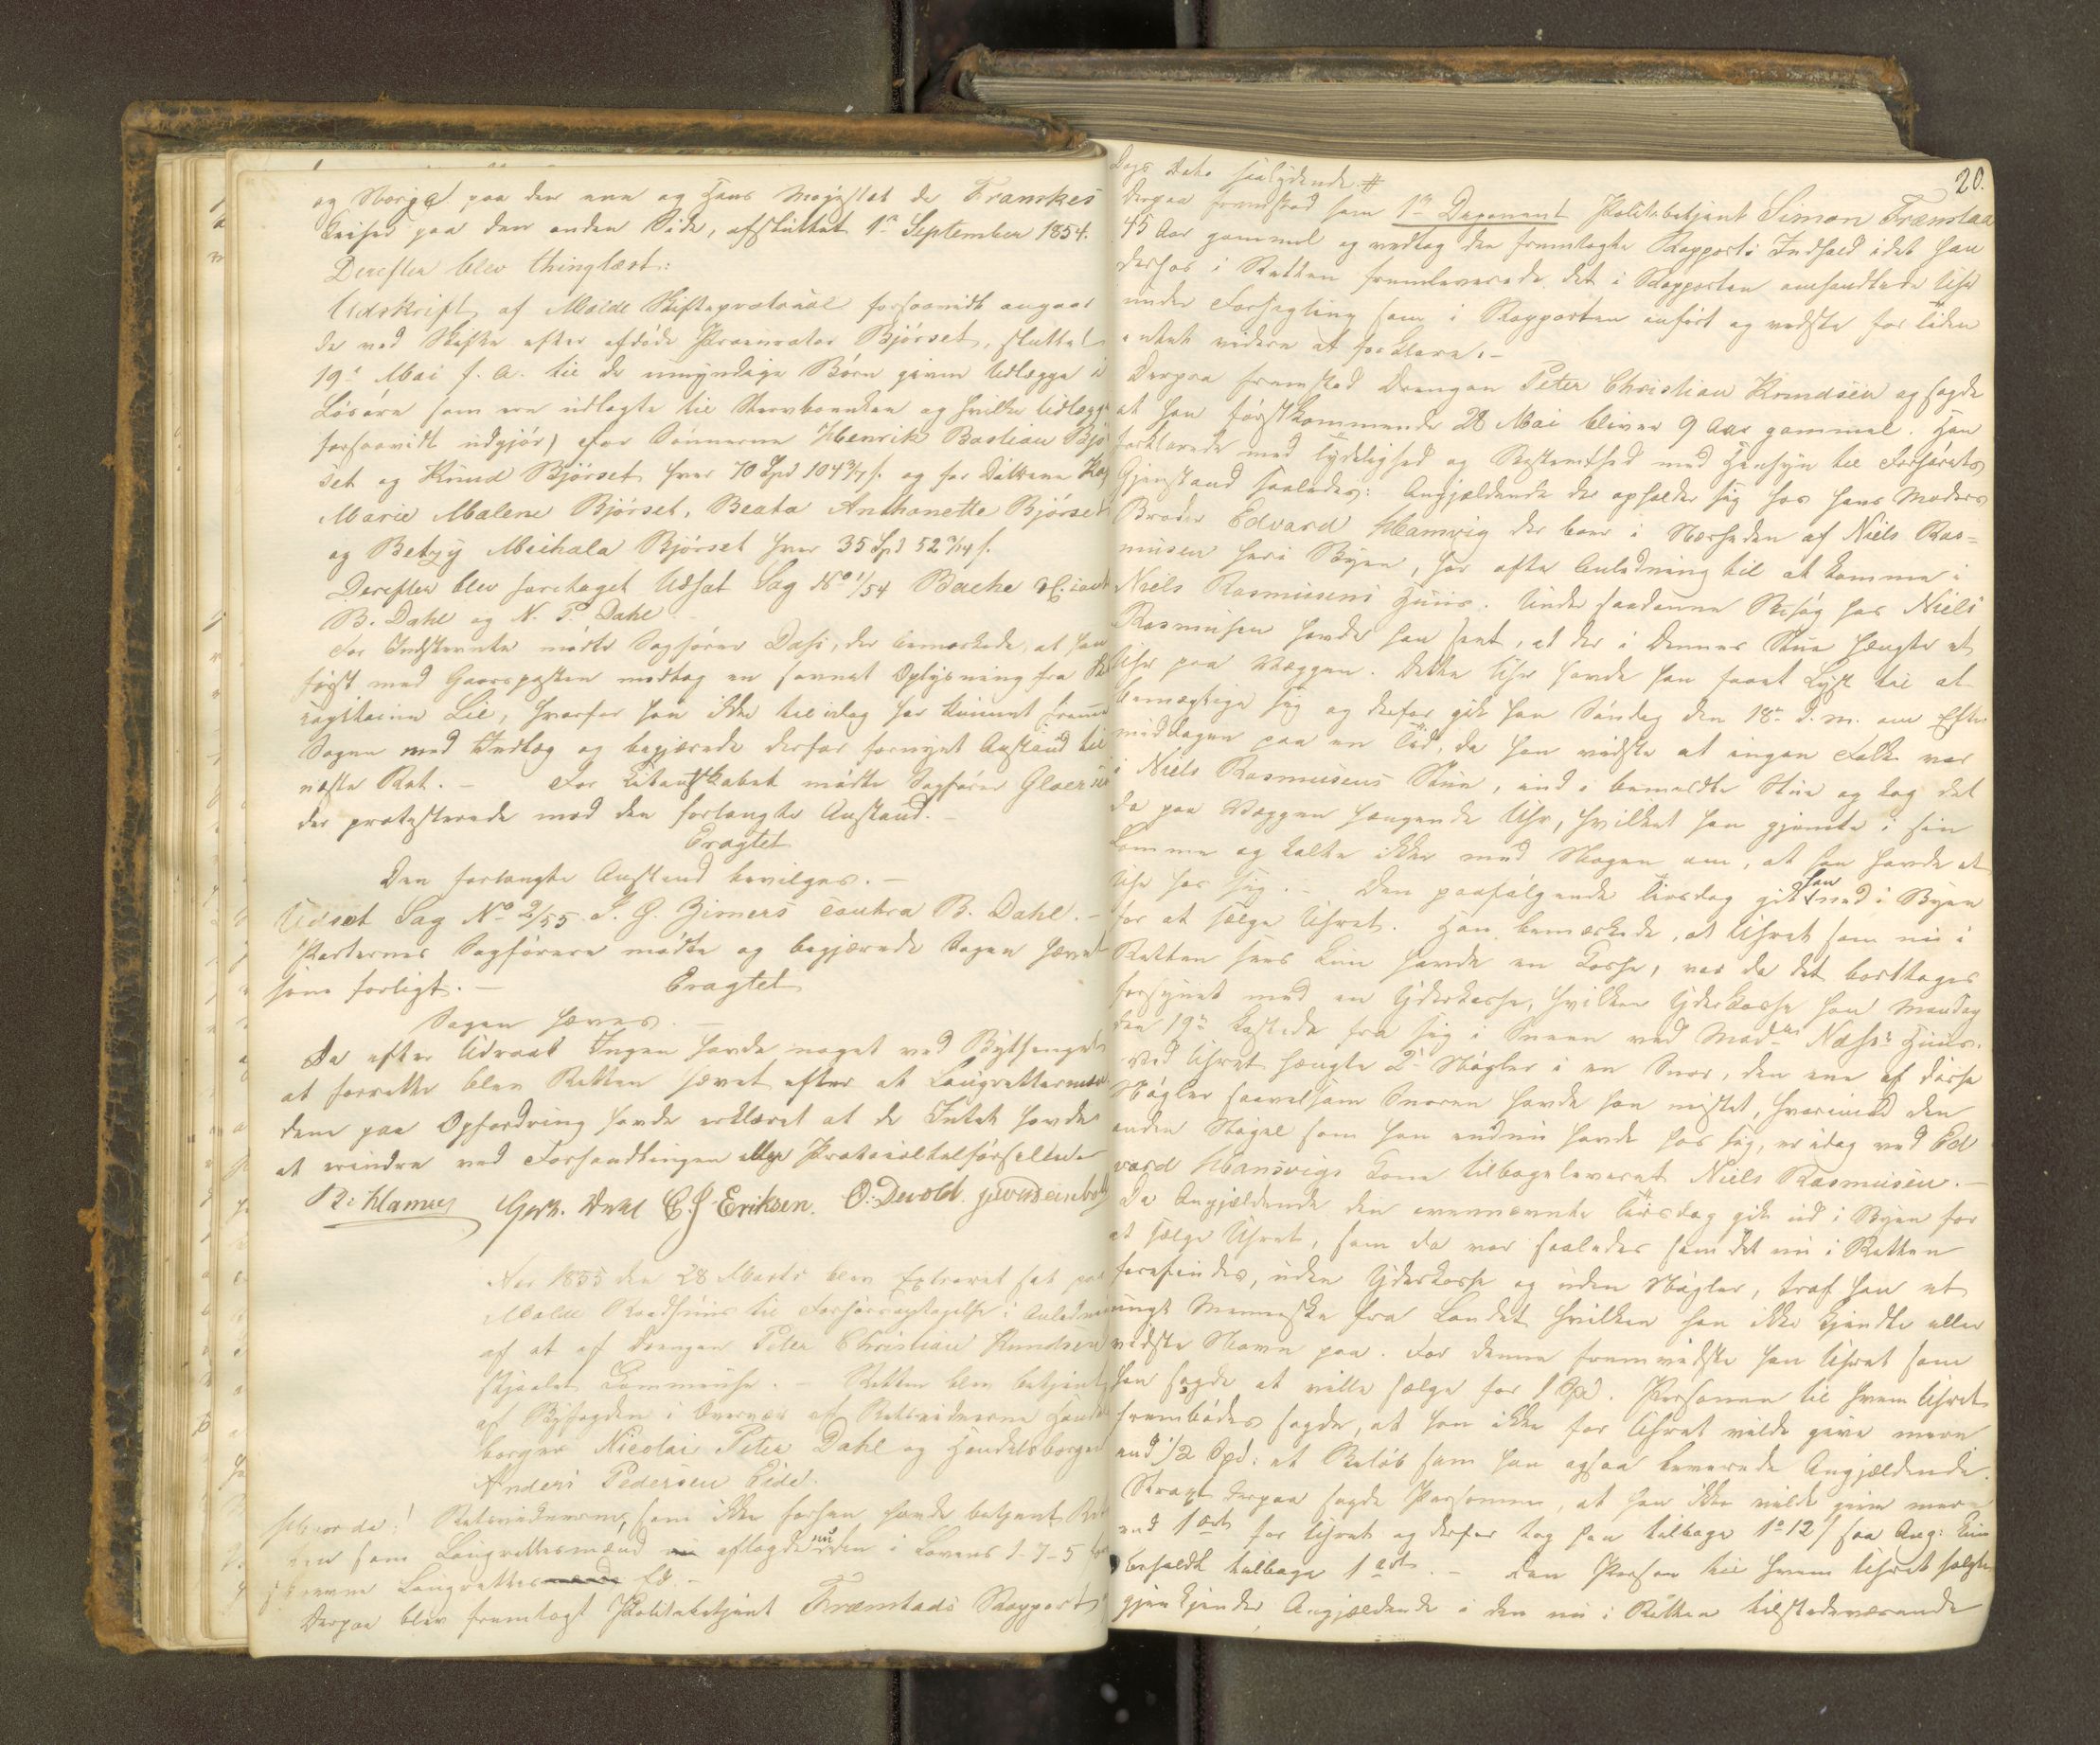 og Norge paa den ene og Hans Majestæt de Franskes
Keiser paa den anden Side, afsluttet 1ste September 1854.
Derefter blev thinglæst:
Udskrift af Molde Skifteprotocol forsaavidt angaar
de ved Skifte efter afdøde Procurator Bjørset, sluttet
19de Mai f. A. til de umyndige Børn givne Udlægge i
Løsøre som ere udlagte til Stervboenken og hvilke Udlægge
forsaavidt udgjør, for Sønnerne Henrik Bastian Bjør
set og Knud Bjørset hver 70 Spd 104 3/7 s. og for Døttrene
Marie Malene Bjørset, Beata Anthonette Bjørset
og Betzy Michala Bjørset hver 35 Spd 52 3/14 s.
Derefter blev foretaget Udsat Sag No 1/54 Bache & C. contra
B. Dahl og N. P. Dahl.
For Indstevnte mødte Sagfører Dahl, der bemærkede, at han
først med Gaarsposten modtog en savnet Oplysning fra
Lie, hvorfor han ikke til idag har kunnet fremme
Sagen med Indlæg og begjærede derfor fornyet Anstand til
næste Ret. - For Citantskabet mødte Sagfører Gloersen
der protesterede mod den forlangte Anstand. -
Eragtet
Den forlangte Anstand bevilges. -
Udsat Sag No 2/55 J. G. Zimers contra B. Dahl. -
Parternes Sagførere mødte og begjærede Sagen hævet
som forligt. - Eragtet
Sagen hæves. -
Da efter Udraab Ingen havde noget ved Bythinget
at forrette blev Retten hævet efter at Laugrettesmæn
dene paa Opfordring havde erklæret at de Intet havde
at erindre ved Forhandlingen eller Protocoltilførslerne
C J Eriksen. O: Devold.
Aar 1855 den 28 Marts blev Extraret sat paa
Molde Raadhuus til Forhørsoptagelse i Anledning
af at af Drengen Peter Christian Knudsen
stjaalet Lommeuhr. - Retten blev betjent
af Byfogden i Overvær af Retsvidnerne Handels
borger Nicolai Peter Dahl og Handelsborger
Anders Pedersen Eide.
Hvorda! Retsvidnerne, som ikke forhen havde betjent Ret
ten som Laugrettesmænd aflagde nu den i Lovens 1-7-5 fore
skrevne Laugrettes Ed. -
Derpaa blev fremlagt Politibetjent Frænstads Rapport
20.
Dags Dato saalydende #
Derpaa fremstod som 1ste Deponent Politibetjent Simon Frænstad
45 Aar gammel og vedtog den fremlagte Rapports Indhold idet han
derhos i Retten fremleverede det i Rapporten omhandlede Uhr
under Forsegling som i Rapporten anført og vidste for tiden
intet videre at forklare. -
Derpaa fremstod Drengen Peter Christian Knudsen og sagde
at han førstkommende 28 Mai bliver 9 Aar gammel. Han
forklarede med Tydelighed og Bestemthed med Hensyn til Forhørets
Gjenstand saaledes: Angjældende der opholder sig hos hans Moders
Broder Edvard Hamvig der boer i Nærheden af Niels Ras=
musen her i Byen, har ofte Anledning til at komme i
Niels Rasmusens Huus. Under saadanne Besøg hos Niels
Rasmusen havde han seet, at der i Dennes Stue hængte et
Uhr paa Væggen. Dette Uhr havde han faaet Lyst til at
bemægtige sig og derfor gik han Søndag den 18de d. m. om Efter
middagen paa en Tid, da han vidste at ingen Folk var
i Niels Rasmusens Stue, ind i bemeldte Stue og tog det
da paa Væggen hængende Uhr, hvilket han gjemte i sin
Lomme og talte ikke med Nogen om, at han havde et
Uhr hos sig. - Den paafølgende Tirsdag gik han ned i Byen
for at sælge Uhret. Han bemærkede, at Uhret som nu i
Retten sees kun havde en Kasse, var da det borttoges
forsynet med en Yderkasse, hvilken Yderkasse han Mandag
den 19de kastede fra sig i Sneen ved Madme Næss's Huus.
Ved Uhret hængte 2de Nøgler i en Snor, den ene af disse
Nøgler saavelsom Snoren havde han mistet, hvorimod den
anden Nøgel som han endnu havde hos sig, er idag ved Ed
vard Hansvigs Kone tilbageleveret Niels Rasmusen. -
Da Angjældende den ovennævnte Tirsdag gik ud i Byen for
at sælge Uhret, som da var saaledes som det nu i Retten
forefindes, uden Yderkasse og uden Nøgler, traf han et
ungt Menneske fra Landet hvilken han ikke kjendte eller
vidste Navn paa. For denne fremviste han Uhret som
han sagde at ville sælge for 1 Spd. Personen til hvem Uhret
frembødes sagde, at han ikke for Uhret vilde give mere
end 1/2 Spd: et Beløb som han ogsaa leverede Angjældende.
Strax derpaa sagde Personen, at han ikke vilde give mere
end 1 ort for Uhret og derfor tog han tilbage 1o 12 s saa Ang: kun
beholdt tilbage 1 ort. - Den Person til hvem Uhret solgtes
gjenkjender Angjældende i den nu i Retten tilstedeværende